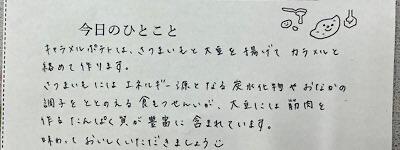 今日のひとこと
キャラメルポテトは、さつまいもと大豆を揚げて カラメルと
絡めて作ります。
さつまいもには エネルギー源となる 炭水化物や おなかの
調子を ととのえる 食もつせんいが、大豆には 筋肉を
作る たんぱく質が 豊富に 含まれています。
味わって おいしくいただきましょう